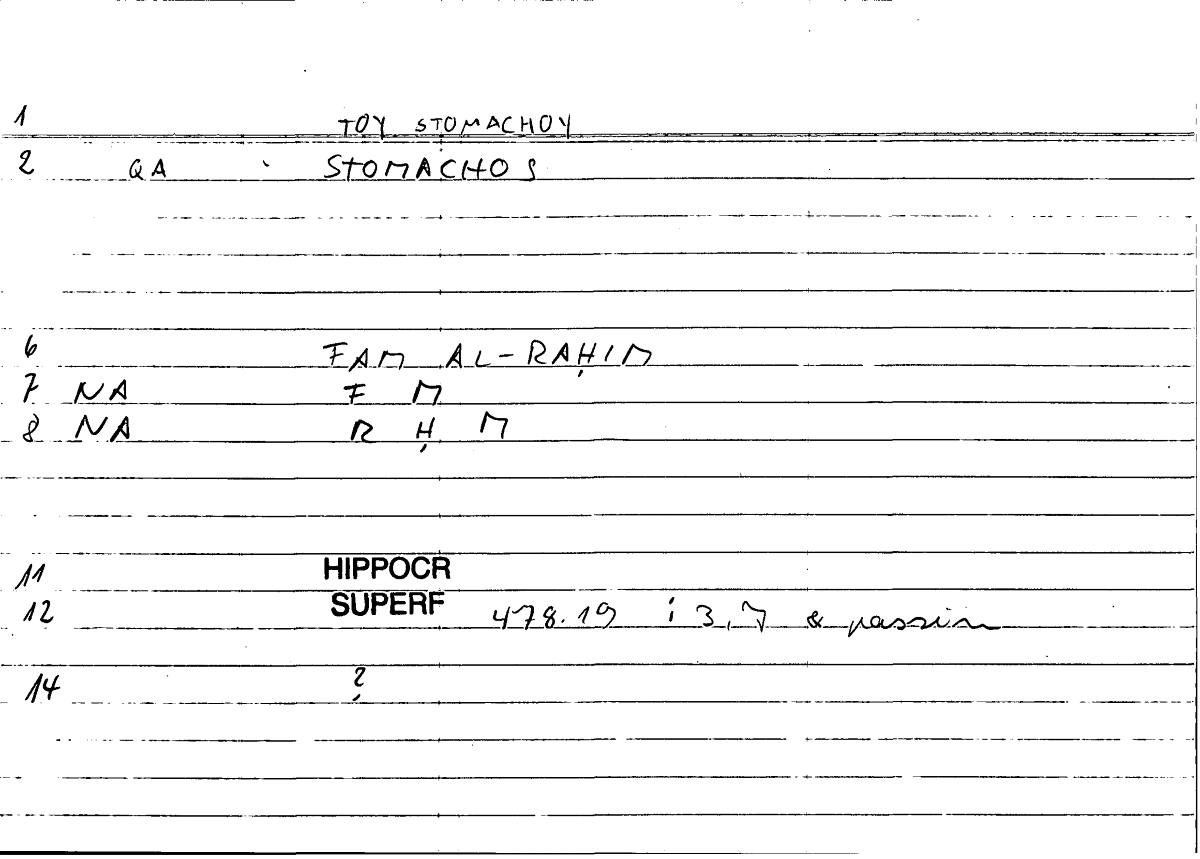 1 TOY STOMACHOY
2 QA STOMACHOS
6 FAM AL-RAḤIM
7 NA F M
8 NA R Ḥ M
11 HIPPOCR
12 SUPERF 478.19 ; 3,7 & passim
14 ?